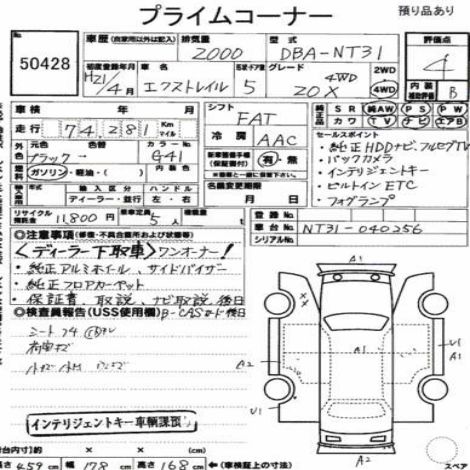 プライムコーナー 預り品あり
50428
車歴(自家用以外は記入) 排気量 2000 型式 DBA-NT31 評価点 4
初度登録年月 H21/4月 車名 エクストレイル ドア数 5 グレード 4WD 20X 2WD 4WD 内装 補助評価 B
車検 年 月 シフト FAT 純正品 SR 純AW PS PW
走行 74,281 Km マイル カワ TV ナビ エアB
外色 元色 ブラック 色替 カラーNo G41 内装色 冷房 AAC セールスポイント
燃料 ガソリン・軽油・( ) 新車整備手帳(保証書付) 有・無
・純正HDDナビ、フルセグTV
・バックカメラ
・インテリジェントキー
・ビルトインETC
・フォグランプ
輸入車 年式 輸入区分 ディーラー・並行 ハンドル 左・右 名義変更期限 月 日
リサイクル預託金 11,800円 乗車定員 5人 積載量 t
登録番号
車台No. NT31-040256
シリアルNo.
◎注意事項(修復・不具合箇所および状態等)
<ディーラー下取車>ワンオーナー!
・純正アルミホイル、サイドバイザー
・純正フロアカーペット
・保証書、取説、ナビ取説後日
◎検査員報告(USS使用欄) B-CASカード後日
シートフケ
インテリジェントキー車輌課預り
A1
A2
U1
A1
U1
A2
長さ 459cm 幅 178cm 高さ 168cm (車検証上の寸法)